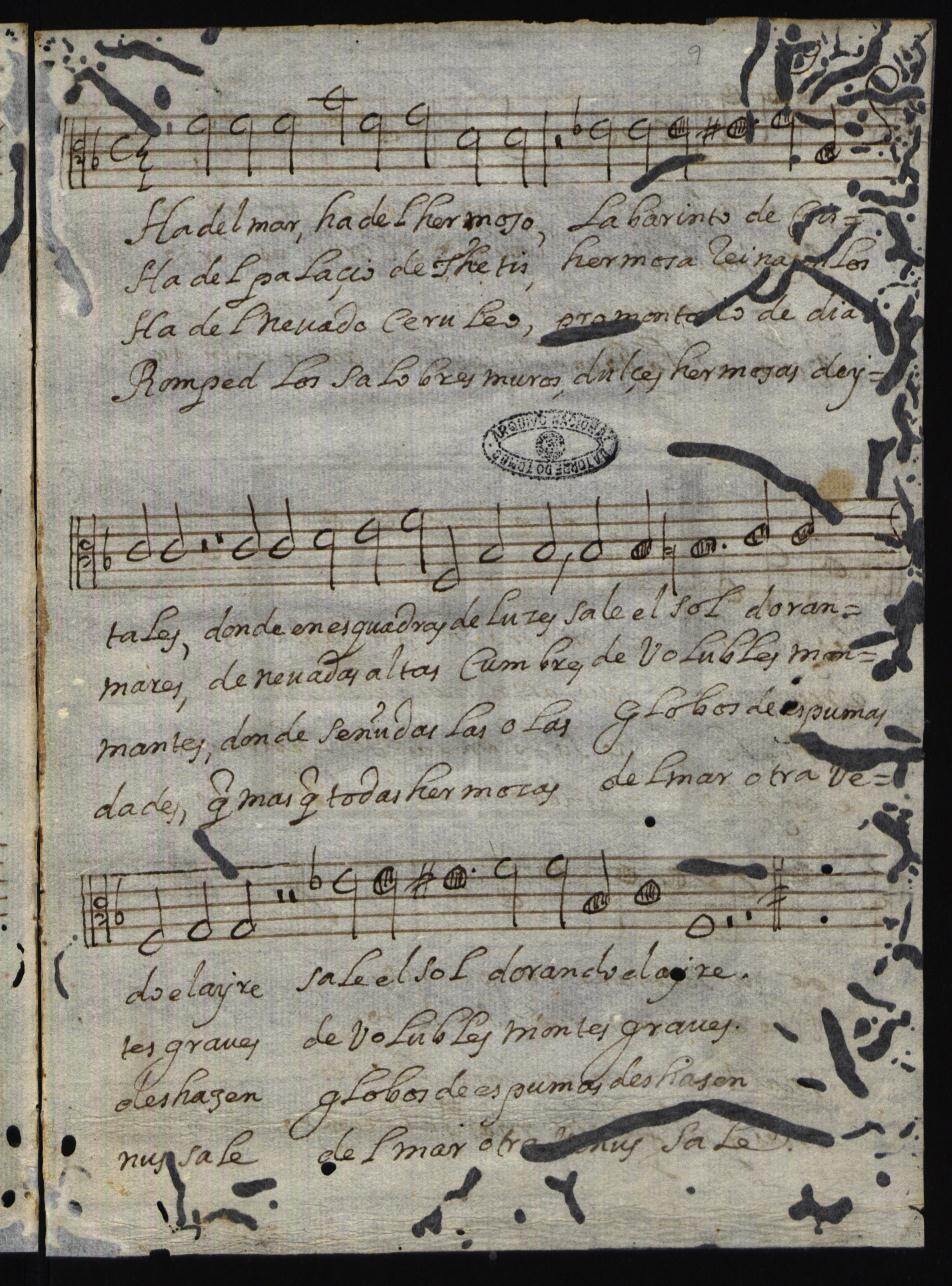 9
Ha del mar, ha del hermoso, Labarinto de Cris=
Ha del palaçio de Thetis, hermosa Reina en los
Ha del nevado Ceruleo, promontorio de dia
Romped los salobres muros, dulçes hermosas dey=
ARQUIVO NACIONAL DA TORRE DO TOMBO
tales, donde en esquadras de luzes sale el sol doran=
mares, de nevadas altas Cumbres de Volubles mon=
mantes, donde señudas las olas globos de espumas
dades, q̃ mas q̃ todas hermozas del mar otra Ve=
do el ayre sale el sol dorando el ayre.
tes graues de Volubles montes graves.
deshazen globos de espumas deshasen
nus sale del mar otra Venus sale.